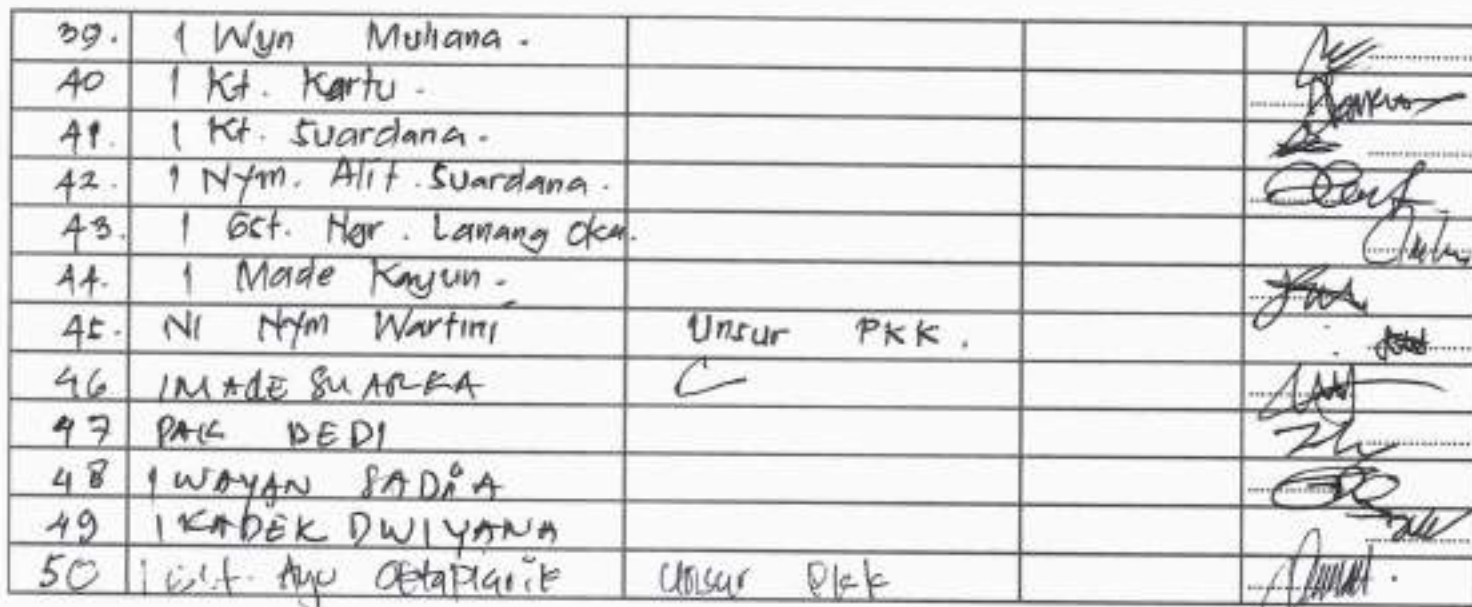 39. I Wyn Muliana.
40 I Kt. Kartu.
41. I Kt. Suardana.
42. I Nym. Alit. Suardana.
43. I Gst. Ngr. Lanang Oka.
44. I Made Kayun.
45. NI Nym Wartini Unsur PKK.
46 I MADE SUARKA
47 PAK DEDI
48 I WAYAN SADIA
49 I KADEK DWIYANA
50 I Gst. Ayu Unsur PKK